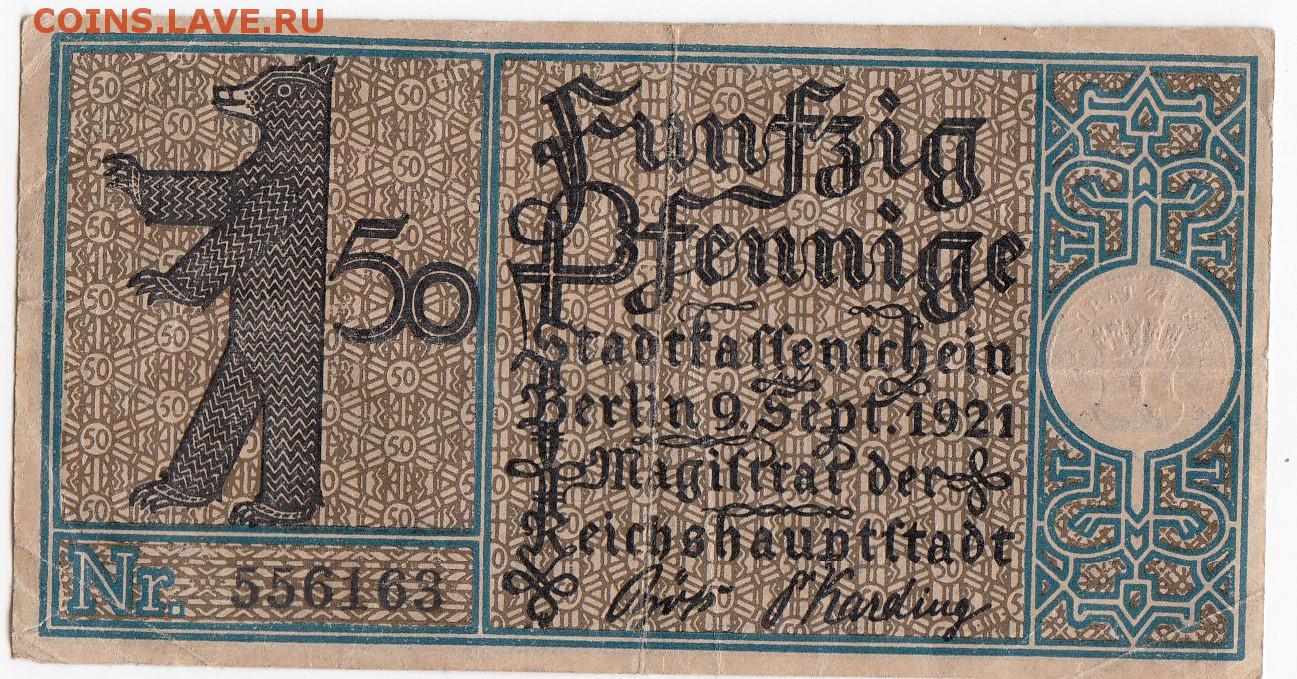 COINS.LAVE.RU
50
Fünfzig
Pfennige
Stadtkaſſenſchein
Berlin 9. Sept. 1921
Magiſtrat der
Reichshauptſtadt
Nr. 556163